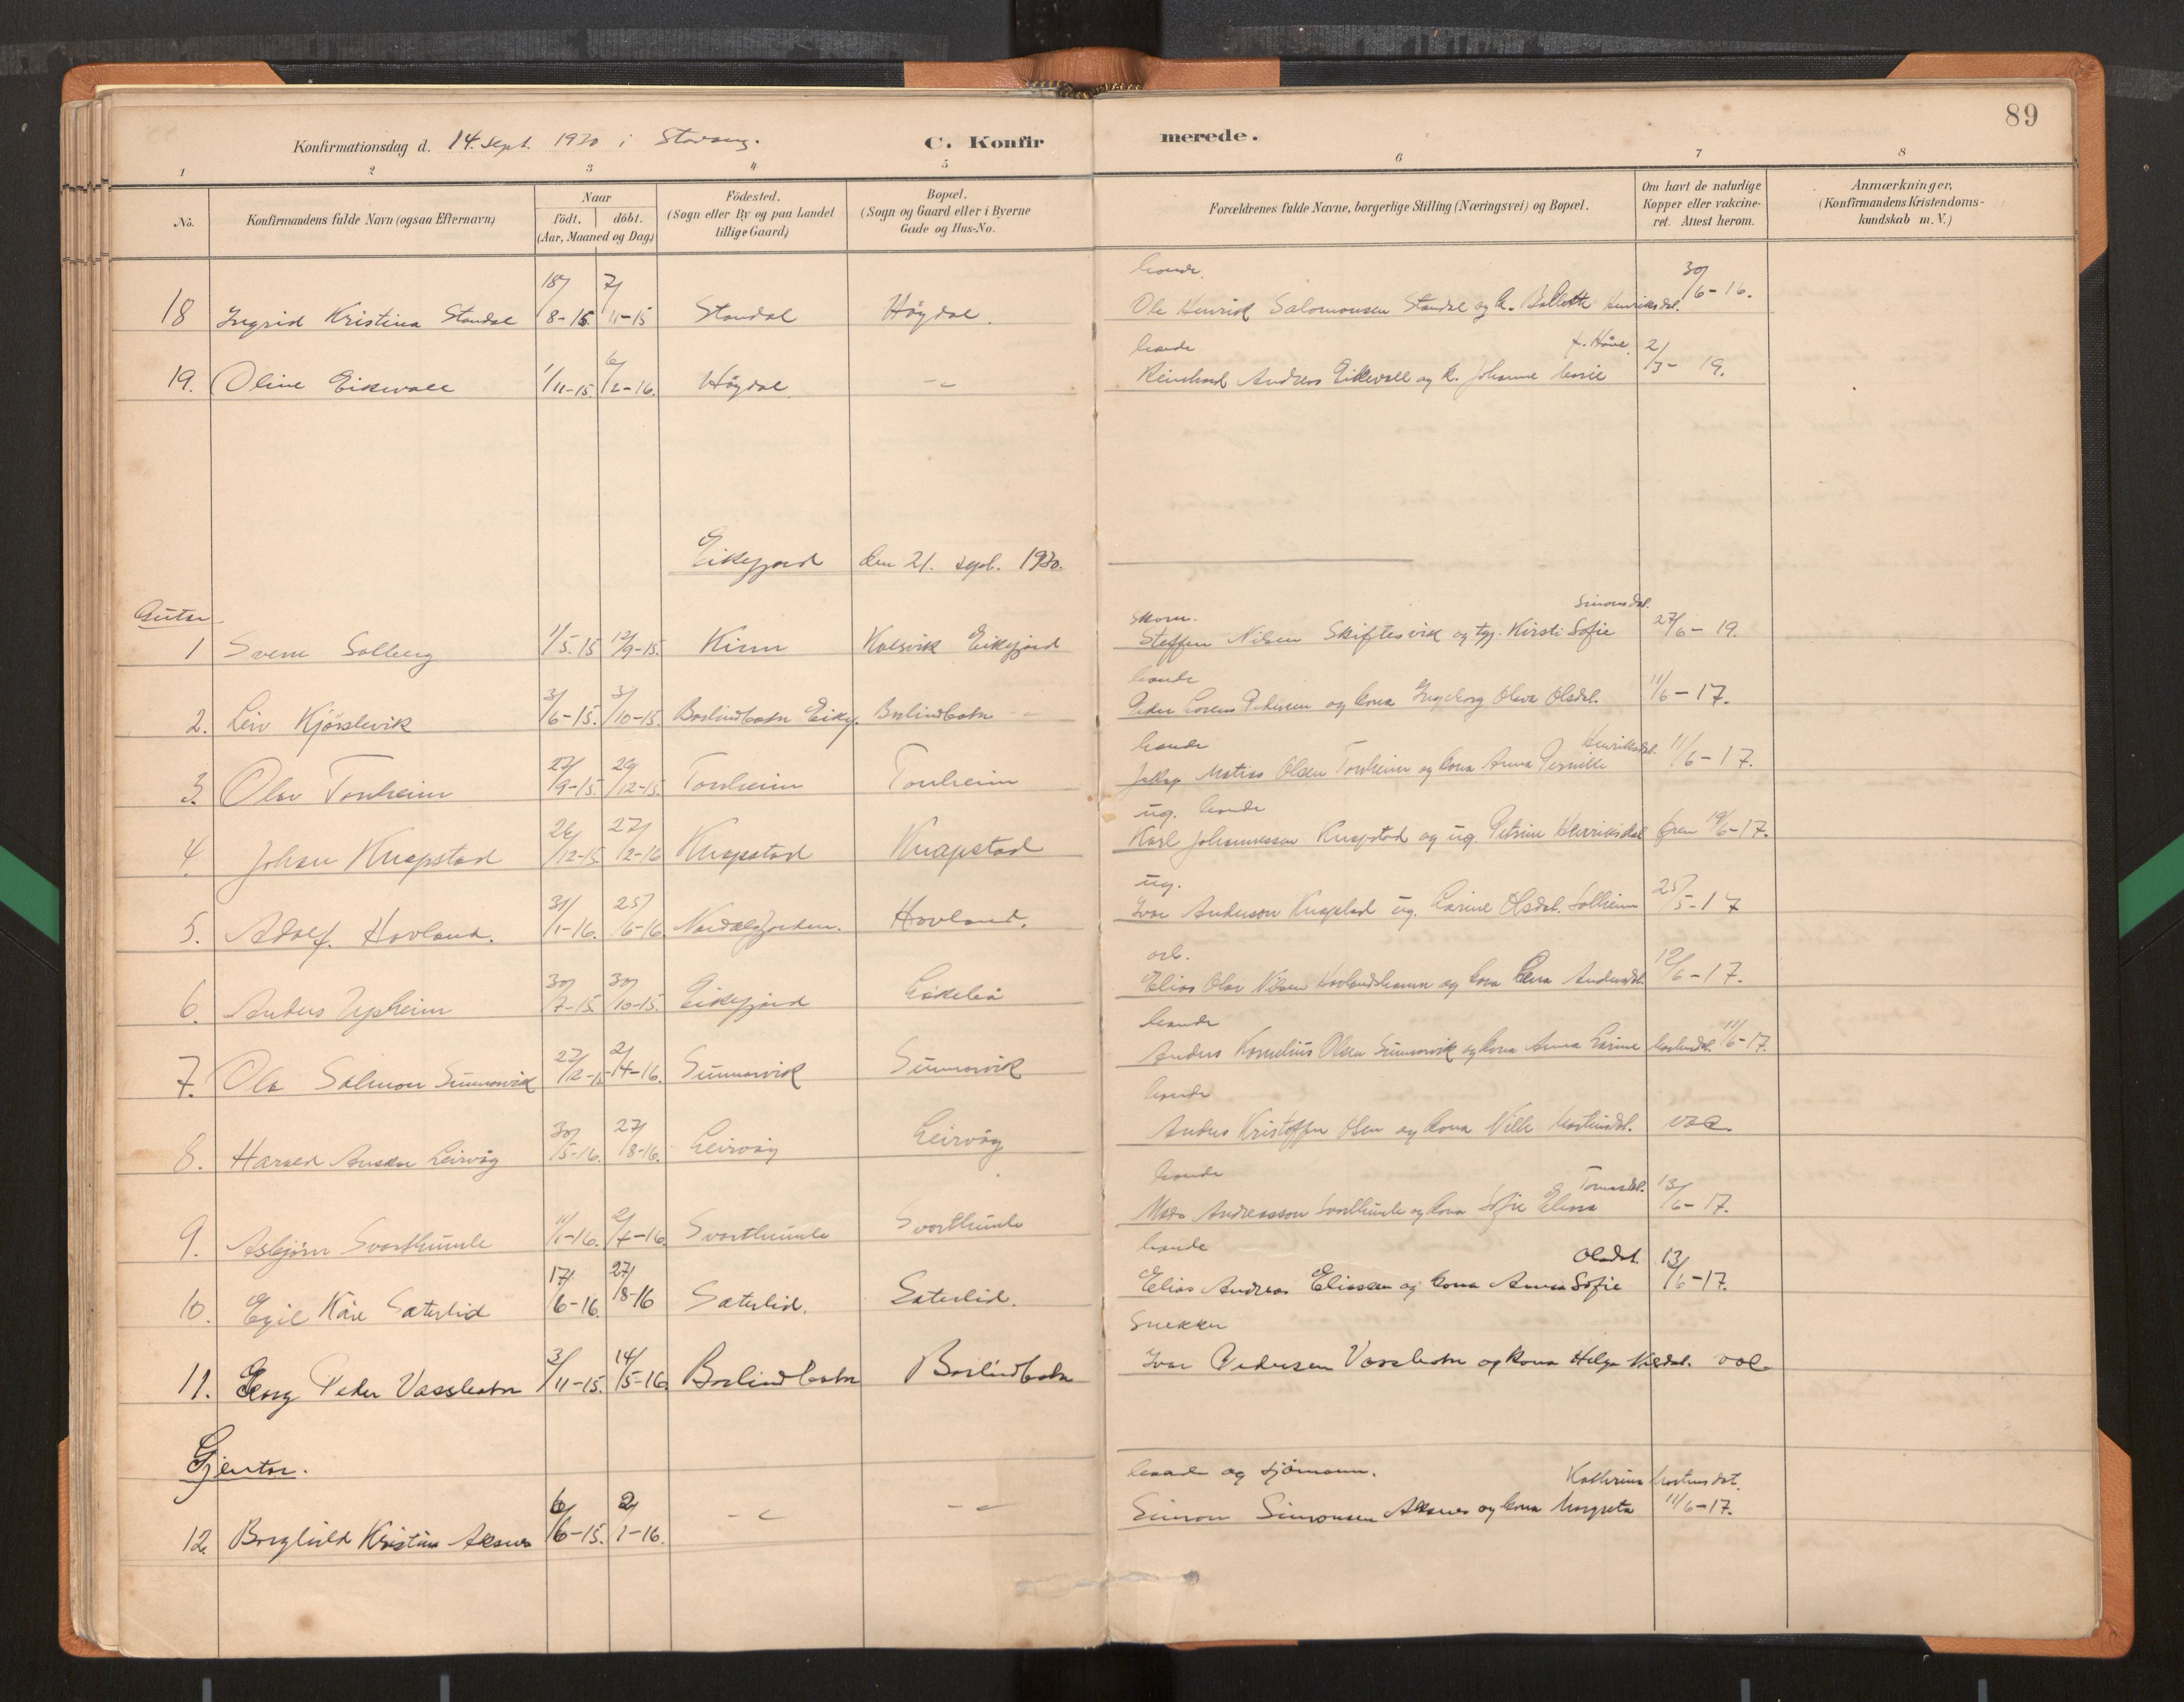 89
Konfirmationsdag d. 14. Sept. 1930 i Stavang.
C. Konfirmerede.
1 2 3 4 5 6 7 8
No.
Konfirmandens fulde Navn (ogsaa Efternavn)
Naar
födt. döbt.
(Aar, Maaned og Dag)
Födested.
(Sogn eller By og paa Landet
tillige Gaard)
Bopæl.
(Sogn og Gaard eller i Byerne
Gade og Hus-No.
Forældrenes fulde Navne, borgerlige Stilling (Næringsvei) og Bopæl.
Om havt de naturlige
Kopper eller vakcine-
ret. Attest herom.
Anmærkninger,
(Konfirmandens Kristendoms-
kundskab m. V.)
bonde
18 Ingrid Kristina Standal 18/8-15 7/11-15 Standal Högdal Ole Henrik Salomonsen Standal og k. Henriksdt. 30/6-16.
bonde f. Håve
19. Oline Eikevoll 1/11-15. 6/2-16. Högdal — " — Reinhard Andreas Eikevoll og k. Johanne 2/3-19.
Eikefjord den 21. sept. 1930.
Gutar
Simonsdt.
1 Sverre Solberg 1/5.15 12/9-15. Kinn Kolsvik Eikefjord Steffen Nilsen Skiftesvik og Kirsti Sofie 27/6-19.
bonde
2. Leiv Kjörslevik 3/6-15. 3/10-15. Borlindbotn Eikefj. Borlindbotn Peder Lorens Pedersen og kona Ingeborg Olava Olsdt. 11/6-17.
bonde Henriksdt.
3. Olav Tonheim 27/9-15. 29/12-15. Tonheim Tonheim Jakop Matias Olsen Tonheim og kona Anna Pernille 11/6-17.
ug. bonde
4. Johan Knapstad 26/12-15 27/2-16 Knapstad Knapstad Karl Johannessen Knapstad og ug. Petrine Henriksdt. 19/6-17.
ug.
5. Adolf Hovland. 31/1-16. 25/6-16 Nordalsfjorden. Hovland. Ivar Anderson Knapstad ug. Karine Olsdt. Solheim 25/5-17
arb.
6. Anders Uppheim 30/7-15. 30/10-15. Eikefjord Elias Olav Nilsen Hovlandshamn og kona Lena Andersdt. 12/6-17.
bonde
7. Ola Salmon Sunnarvik 27/12-15 2/4-16. Sunnarvik Sunnarvik Anders Kornelius Olsen Sunnarvik og kona Anna Karine 11/6-17.
bonde
8. Harald Ansken Leirvåg 30/5-16. 27/8-16. Leirvåg Leirvåg Anders Kristoffer Olsen og kona Nille Mortinsdt. vac.
bonde Tomasdt.
9. Asbjörn Svorthumle 11/1-16. 2/4-16. Svorthumle Svorthumle Mads Andreassen Svorthumle og kona Sofie Elena 13/6-17.
bonde Olsdt.
10. Egil Kåre Sæterlid 17/6-16. 27/8-16 Sæterlid. Sæterlid. Elias Andreas Eliassen og kona Anna Sofie 13/6-17.
Snekker
11. Georg Peder Vassbotn 3/11-15. 14/5-16 Borlindbotn Borlindbotn Ivar Pedersen Vassbotn og kona Helga Nilsdt. vac
Gjentor.
bonde og sjömann. Kathrina Mortensdt.
12. Borghild Kristine Aksnes 6/6-15. 2/1-16. — " — — " — Simon Simonsen Aksnes og kona Margreta 11/6-17.